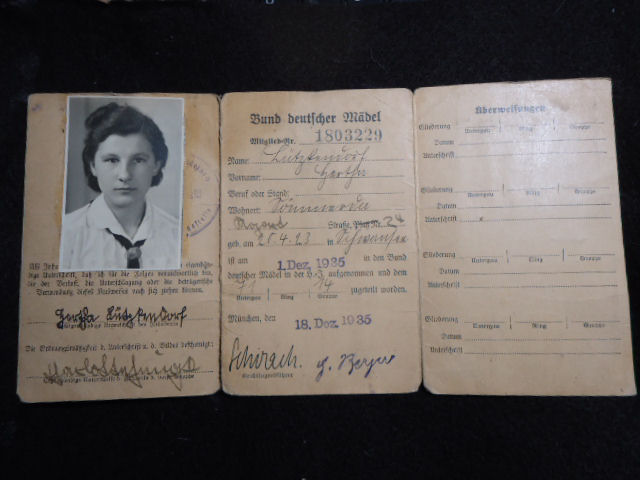 Als Inha
händige Unterschrift, daß ich für die Folgen verantwortlich bin,
die der Verlust, die Unterschlagung oder die betrügerische
Verwendung dieses Ausweises nach sich ziehen können.
Hertha Lützkendorf
Die Ordnungsmäßigkeit d. Unterschrift u. d. Bildes bescheinigt:
Bund deutscher Mädel
Mitglied-Nr. 1803229
Name: Lützkendorf
Vorname: Hertha
Beruf oder Stand:
Wohnort: Sömmerda
Straße, Platz Nr. 24
geb. am 25.4.23 in Schwansee
ist am 1. Dez. 1935 in den Bund
deutscher Mädel in der H.J. aufgenommen und dem
71 14
Untergau Ring Gruppe zugeteilt worden.
München, den 18. Dez. 1935
Schirach.
Reichsjugendführer
Überweisungen
Gliederung Untergau Ring Gruppe
Datum
Unterschrift
Gliederung Untergau Ring Gruppe
Datum
Unterschrift
Gliederung Untergau Ring Gruppe
Datum
Unterschrift
Gliederung Untergau Ring Gruppe
Datum
Unterschrift